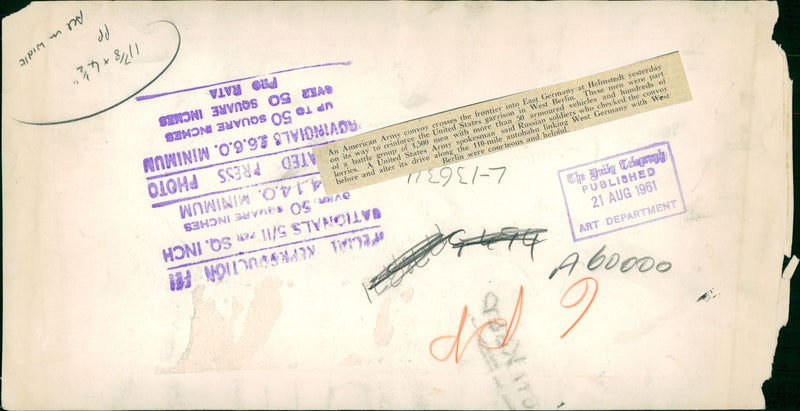 11 7/8 x 4 1/2"
An American Army convoy crosses the frontier into East Germany at Helmstedt yesterday
on its way to reinforce the United States garrison in West Berlin. These men were part
of a battle group of 1,500 men with more than 50 armoured vehicles and hundreds of
lorries. A United States Army spokesman said Russian soldiers who checked the convoy
before and after its drive along the 110-mile autobahn linking West Germany with West
Berlin were courteous and helpful.
The Daily Telegraph
PUBLISHED
21 AUG 1961
ART DEPARTMENT
A60000
6 PP
SPECIAL REPRODUCTION FEE
NATIONALS 5/11 PER SQ. INCH
OVER 50 SQUARE INCHES
4.14.0. MINIMUM
ATED PRESS PHOTO
ROVINCIALS £6.6.0. MINIMUM
UP TO 50 SQUARE INCHES
OVER 50 SQUARE INCHES
PRO RATA